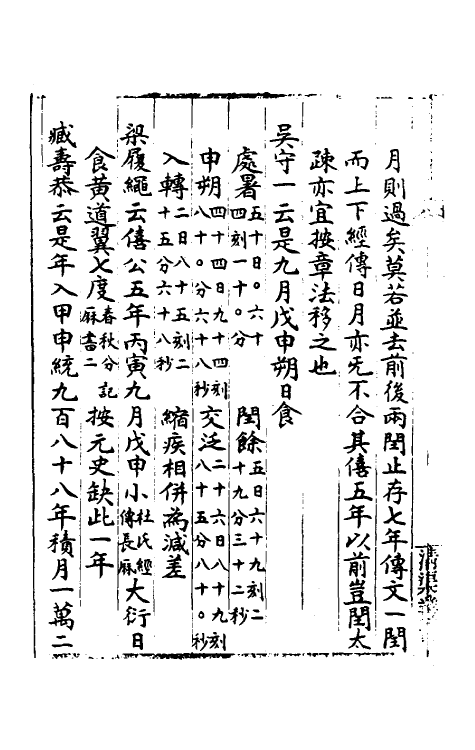 月則過矣莫若並去前後兩閏止存七年傳文一閏
而上下經傳日月亦旡不合其僖五年以前豈閏太
疎亦宜按章法移之也
吳守一云是九月戊申朔日食
處署五十日。六十四刻一十。分 閏餘五日六十九刻二十九分三十二秒
申朔四十四日九十四刻八十。分六十八秒 交泛二十六日八十九刻八十五分八十。秒
入轉二日八十五刻二十五分六十八秒 縮疾相併為減差
梁履繩云僖公五年丙寅九月戊申小杜氏經傳長厤大衍日
食黃道翼七度春秋分記厤書二按元史缺此一年
臧壽恭云是年入甲申統九百八十八年積月一萬二